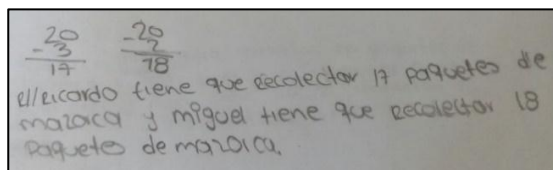 20 -20
-3 2
17 18
R// Ricardo tiene que recolectar 17 paquetes de
mazorca y miguel tiene que recolectar 18
paquetes de mazorca.